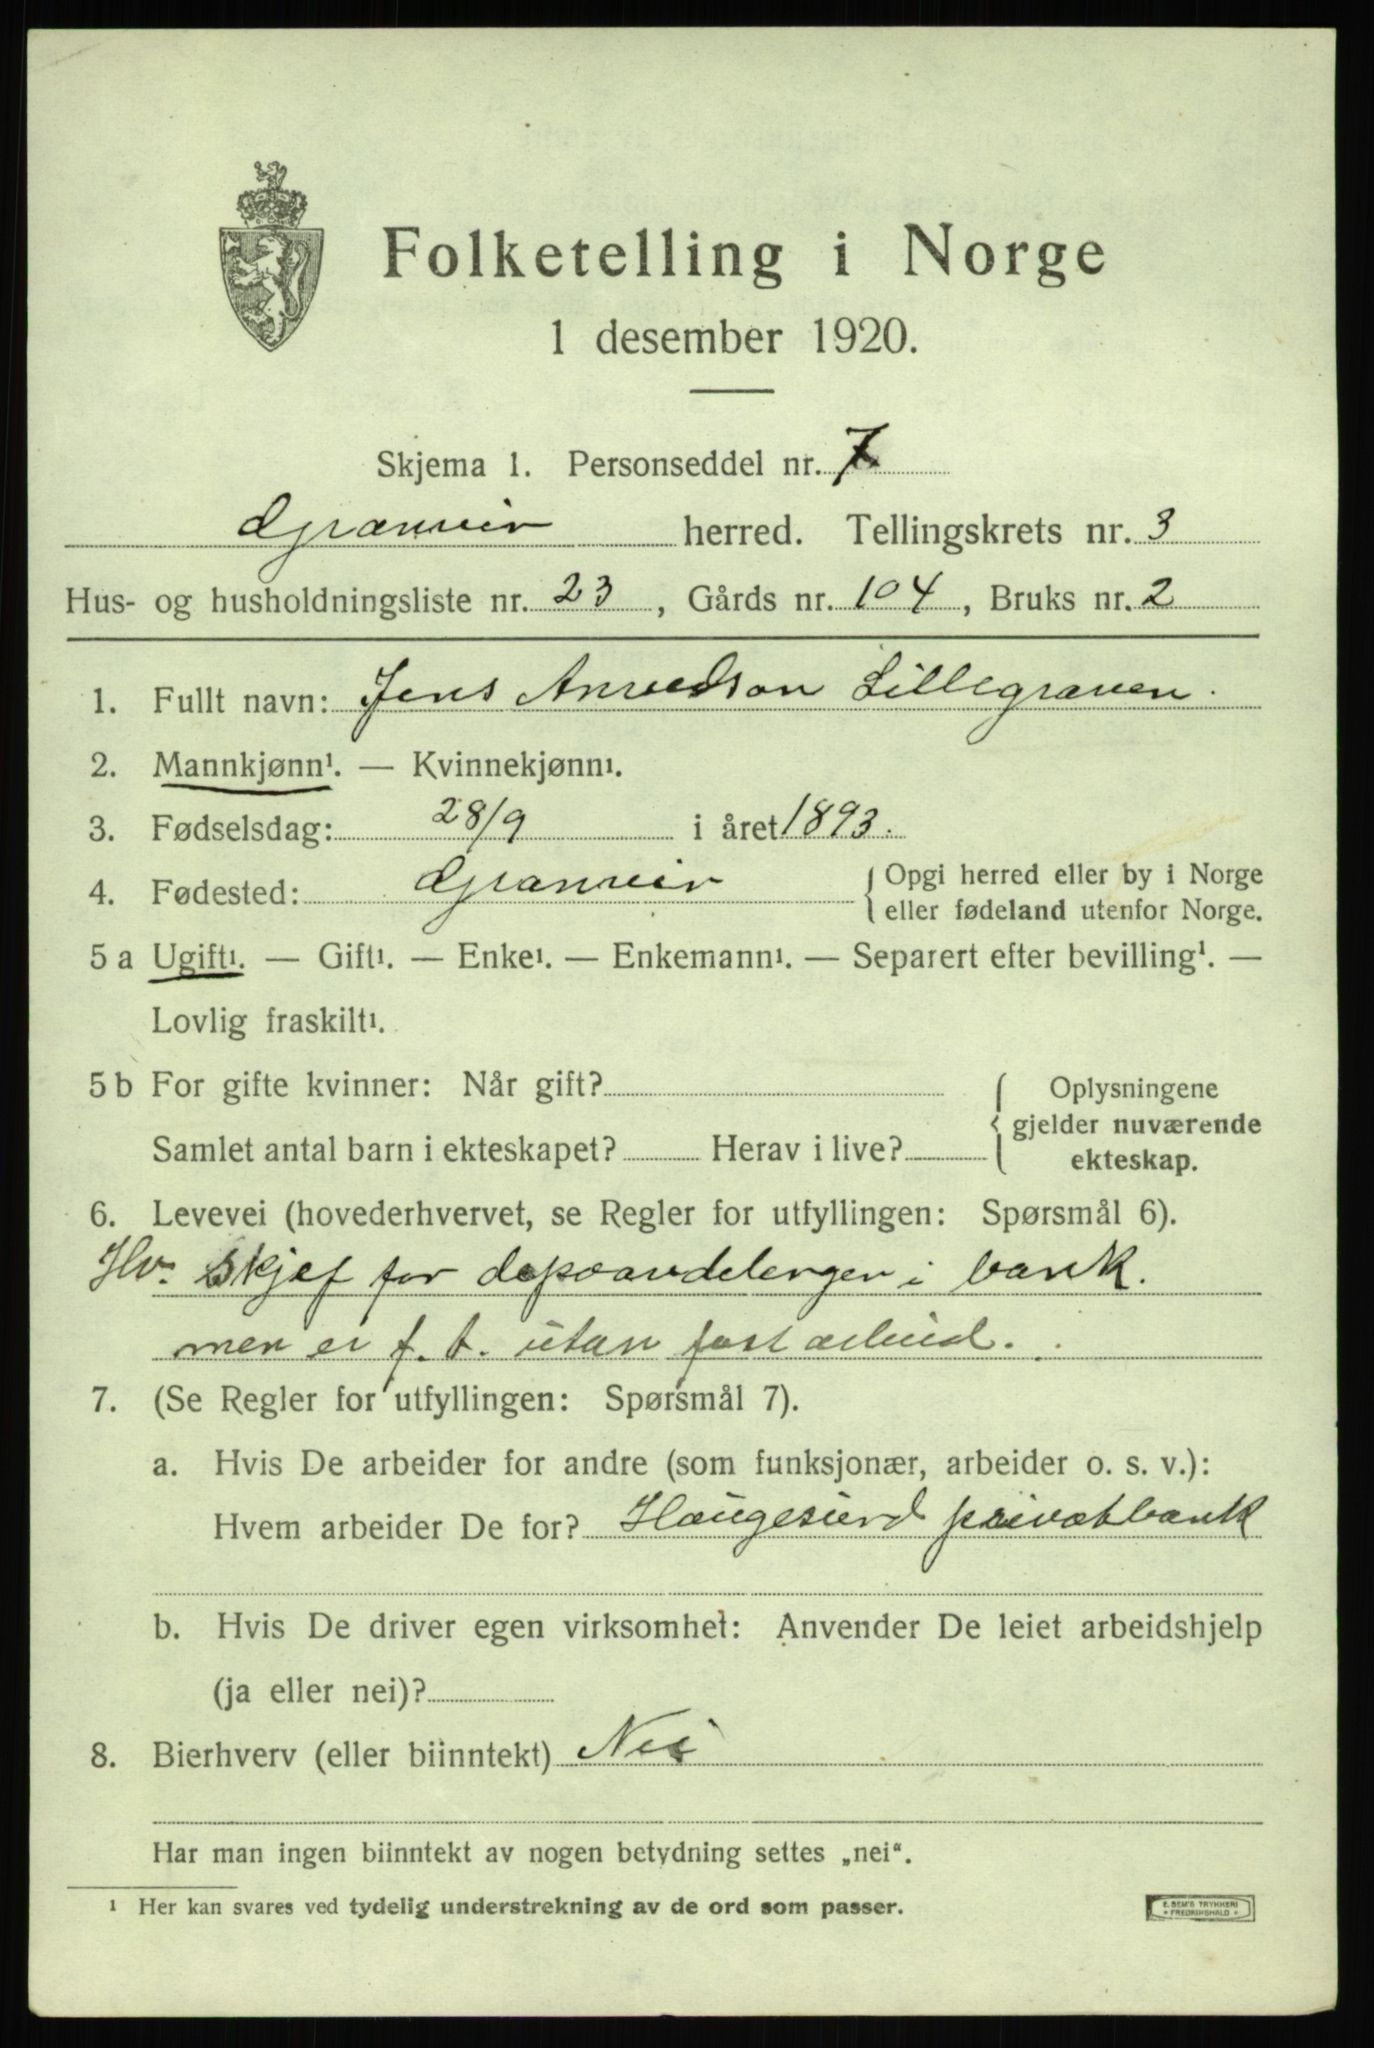 Folketelling i Norge
1 desember 1920.
Skjema 1. Personseddel nr. 7
Granvin herred. Tellingskrets nr. 3
Hus- og husholdningsliste nr. 23, Gårds nr. 104, Bruks nr. 2
1. Fullt navn: Jens Anvedson Lillegraven.
2. Mannkjønn¹. — Kvinnekjønn¹.
3. Fødselsdag: 28/9 i året 1893.
4. Fødested: Granvin { Opgi herred eller by i Norge
eller fødeland utenfor Norge.
5 a Ugift¹. — Gift¹. — Enke¹. — Enkemann¹. — Separert efter bevilling¹. —
Lovlig fraskilt¹.
5 b For gifte kvinner: Når gift?
Samlet antal barn i ekteskapet? Herav i live?
{ Oplysningene
gjelder nuværende
ekteskap.
6. Levevei (hovederhvervet, se Regler for utfyllingen: Spørsmål 6).
Hv. skjef for depoavdelengen i bank.
men er f. t. utan fast arbeid.
7. (Se Regler for utfyllingen: Spørsmål 7).
a. Hvis De arbeider for andre (som funksjonær, arbeider o. s. v.):
Hvem arbeider De for? Haugesund privatbank
b. Hvis De driver egen virksomhet: Anvender De leiet arbeidshjelp
(ja eller nei)?
8. Bierhverv (eller biinntekt) Nei
Har man ingen biinntekt av nogen betydning settes „nei“.
¹ Her kan svares ved tydelig understrekning av de ord som passer.
E. SEM'S TRYKKERI
* FREDRIKSHALD *